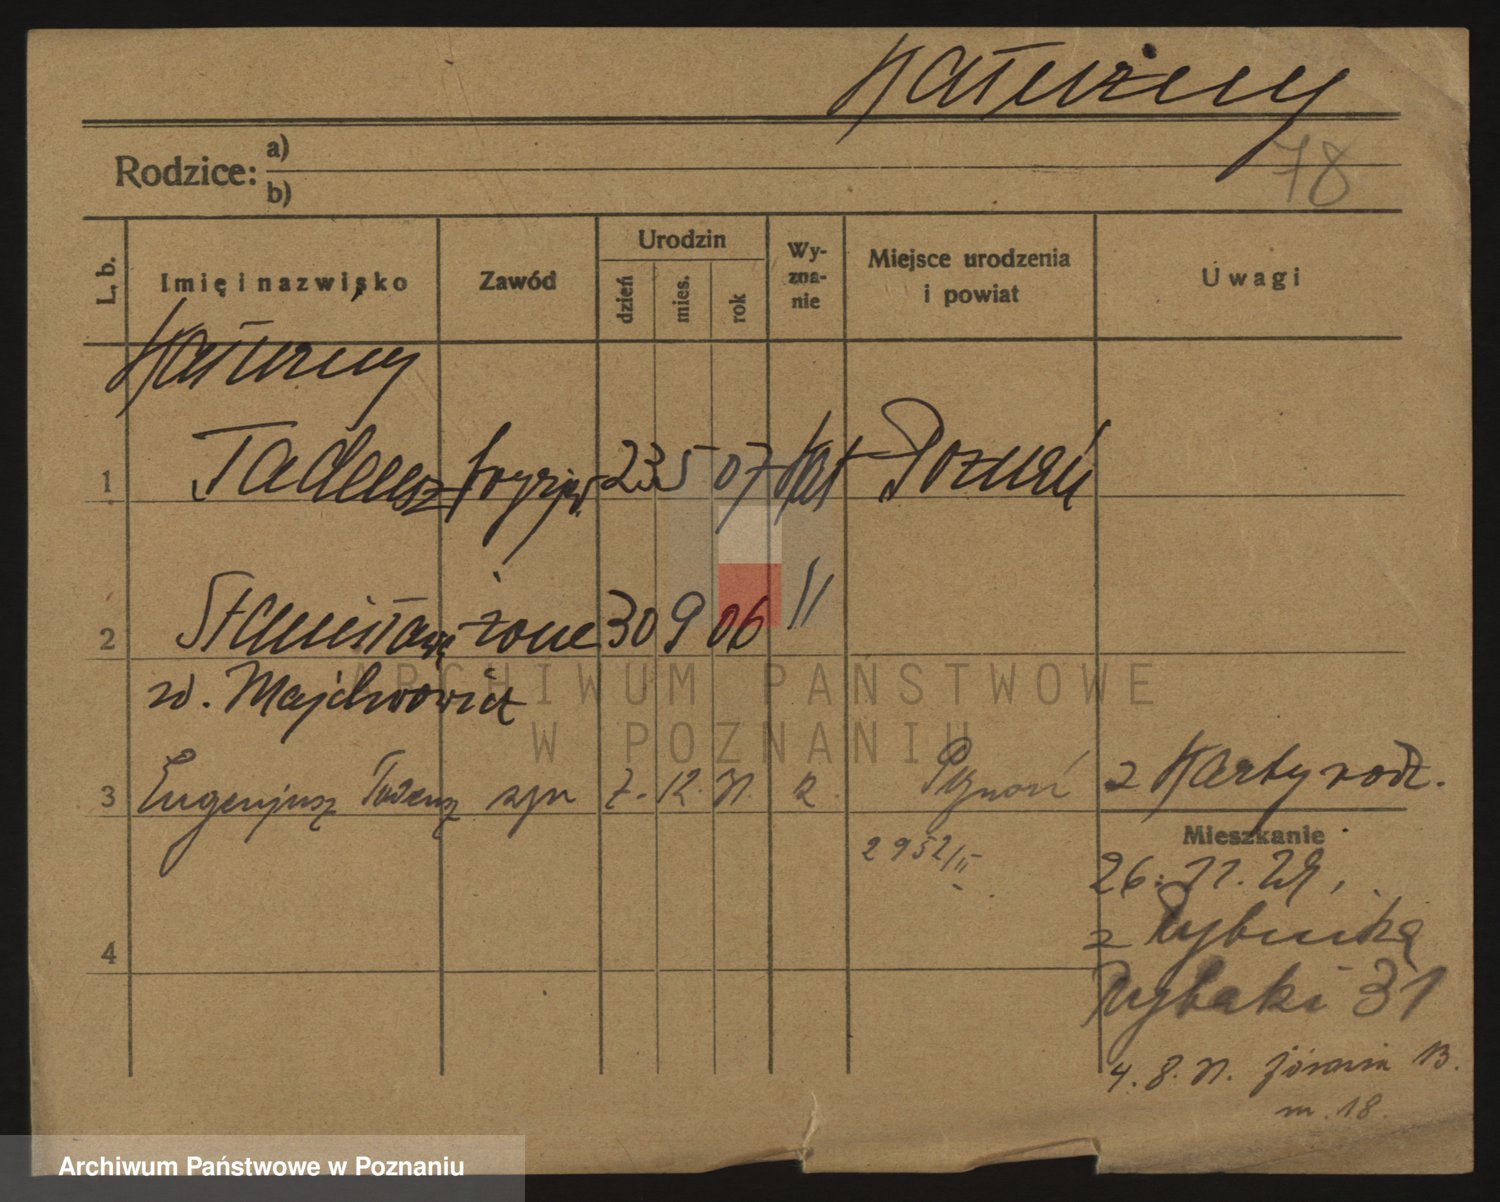 Kałużny
Rodzice: a)
b)
78
L. b. Imię i nazwisko Zawód Urodzin dzień mies. rok Wy-zna-nie Miejsce urodzenia i powiat Uwagi
Kałużny
1 Tadeusz fryzjer 23 5 07 kat Poznań
2 Stanisława żona 30 9 06 "
zd. Majchrowicz
3 Eugenjusz Tadeusz syn 7. 12. 31. Poznań z Karty rodz.
2952/II
Mieszkanie
26. 11. 29,
z Rybnika
4 Rybaki 31
4. 8. 31. 13.
m. 18.
ARCHIWUM PAŃSTWOWE
W POZNANIU
Archiwum Państwowe w Poznaniu